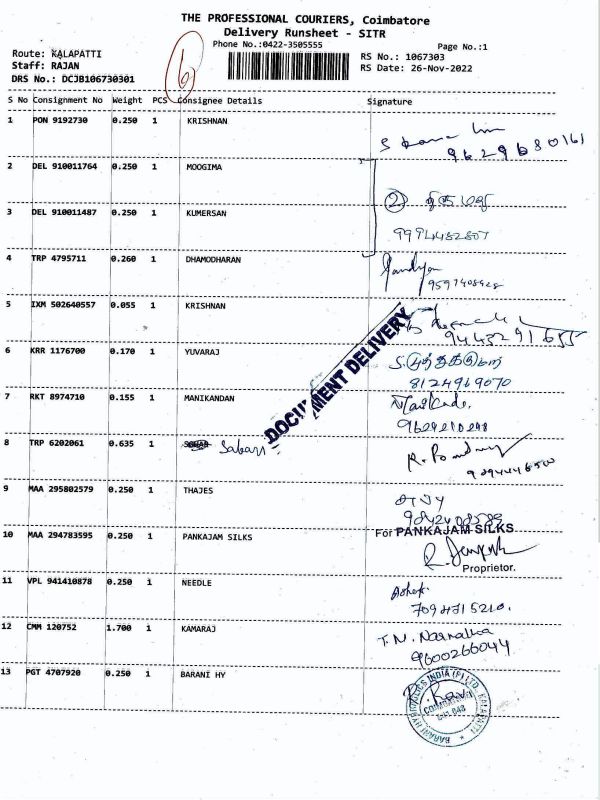 THE PROFESSIONAL COURIERS, Coimbatore
Delivery Runsheet - SITR
Phone No.:0422-3505555
Page No.:1
Route: KALAPATTI
RS No.: 1067303
Staff: RAJAN
RS Date: 26-Nov-2022
DRS No.: DCJB106730301
6
S No Consignment No Weight PCS Consignee Details Signature
1 PON 9192730 0.250 1 KRISHNAN
9629680161
2 DEL 910011764 0.250 1 MOOGIMA
2
3 DEL 910011487 0.250 1 KUMERSAN
4 TRP 4795711 0.260 1 DHAMODHARAN
5 IXM 502640557 0.055 1 KRISHNAN
DOCUMENT DELIVERY
6 KRR 1176700 0.170 1 YUVARAJ
8124969070
7 RKT 8974710 0.155 1 MANIKANDAN
8 TRP 6202061 0.635 1 Sabari
9 MAA 295802579 0.250 1 THAJES
10 MAA 294783595 0.250 1 PANKAJAM SILKS
For PANKAJAM SILKS
Proprietor.
11 VPL 941410878 0.250 1 NEEDLE
Ashok
7094715210.
12 CMM 120752 1.700 1 KAMARAJ
T.N.
9600266044
13 PGT 4707920 0.250 1 BARANI HY